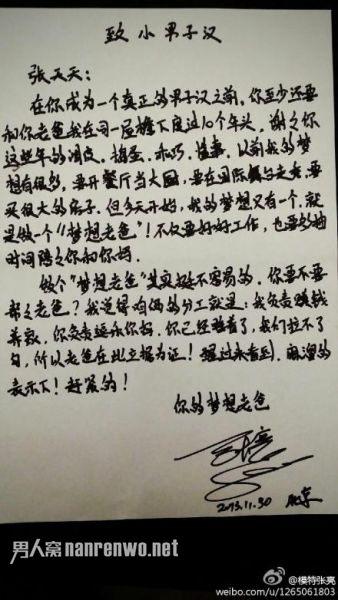 致小男子汉
张天天：
在你成为一个真正的男子汉之前，你至少还要
和你老爸我在同一屋檐下度过10个年头，谢谢你
这些年的调皮、捣蛋、乖巧、懂事，以前我的梦
想有很多，要开餐厅当大厨，要在国际舞台走秀，要
买很大的房子，但今天开始，我的梦想又有一个，就
是做一个"梦想老爸"！不仅要好好工作，也要多抽
时间陪陪你和你妈。
做个"梦想老爸"其实挺不容易的，你要不要
帮帮老爸？我觉得咱俩的分工就这：我负责赚钱
养家，你负责逗乐你妈。你已经睡着了，我们拉不了
勾，所以老爸在此立据为证！醒过来看到，麻溜的
表示下！赶紧的！
你的梦想老爸
2013.11.30 北京
男人窝nanrenwo.net
@模特张亮
weibo.com/u/1265061803